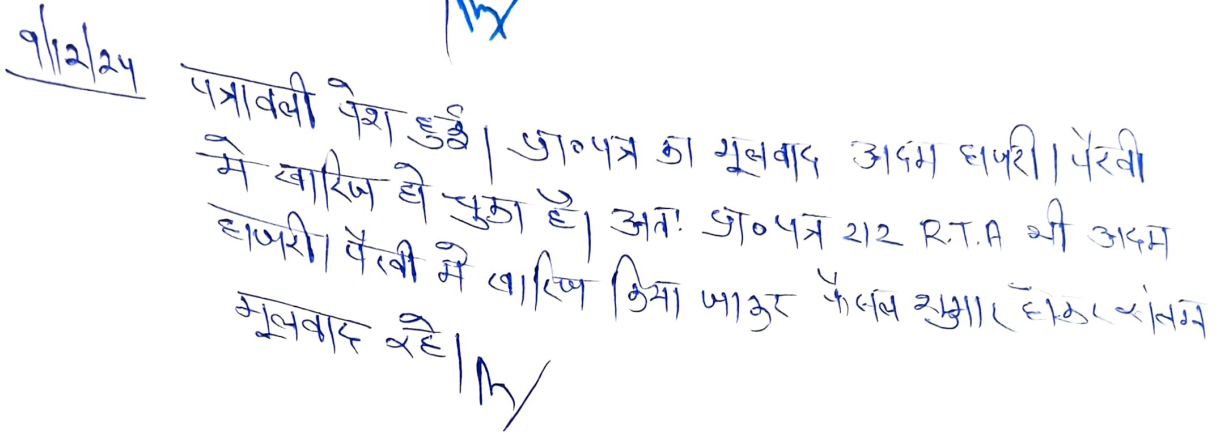 9/12/24 पत्रावली पेश हुई। प्रा०पत्र का मूलवाद अदम हाजरी। पैरवी
मे खारिज हो चुका है। अतः प्रा०पत्र 212 R.T.A भी अदम
हाजरी। पैरवी मे खारिज किया जाकर फैसल शुमार होकर संलग्न
मूलवाद रहे।